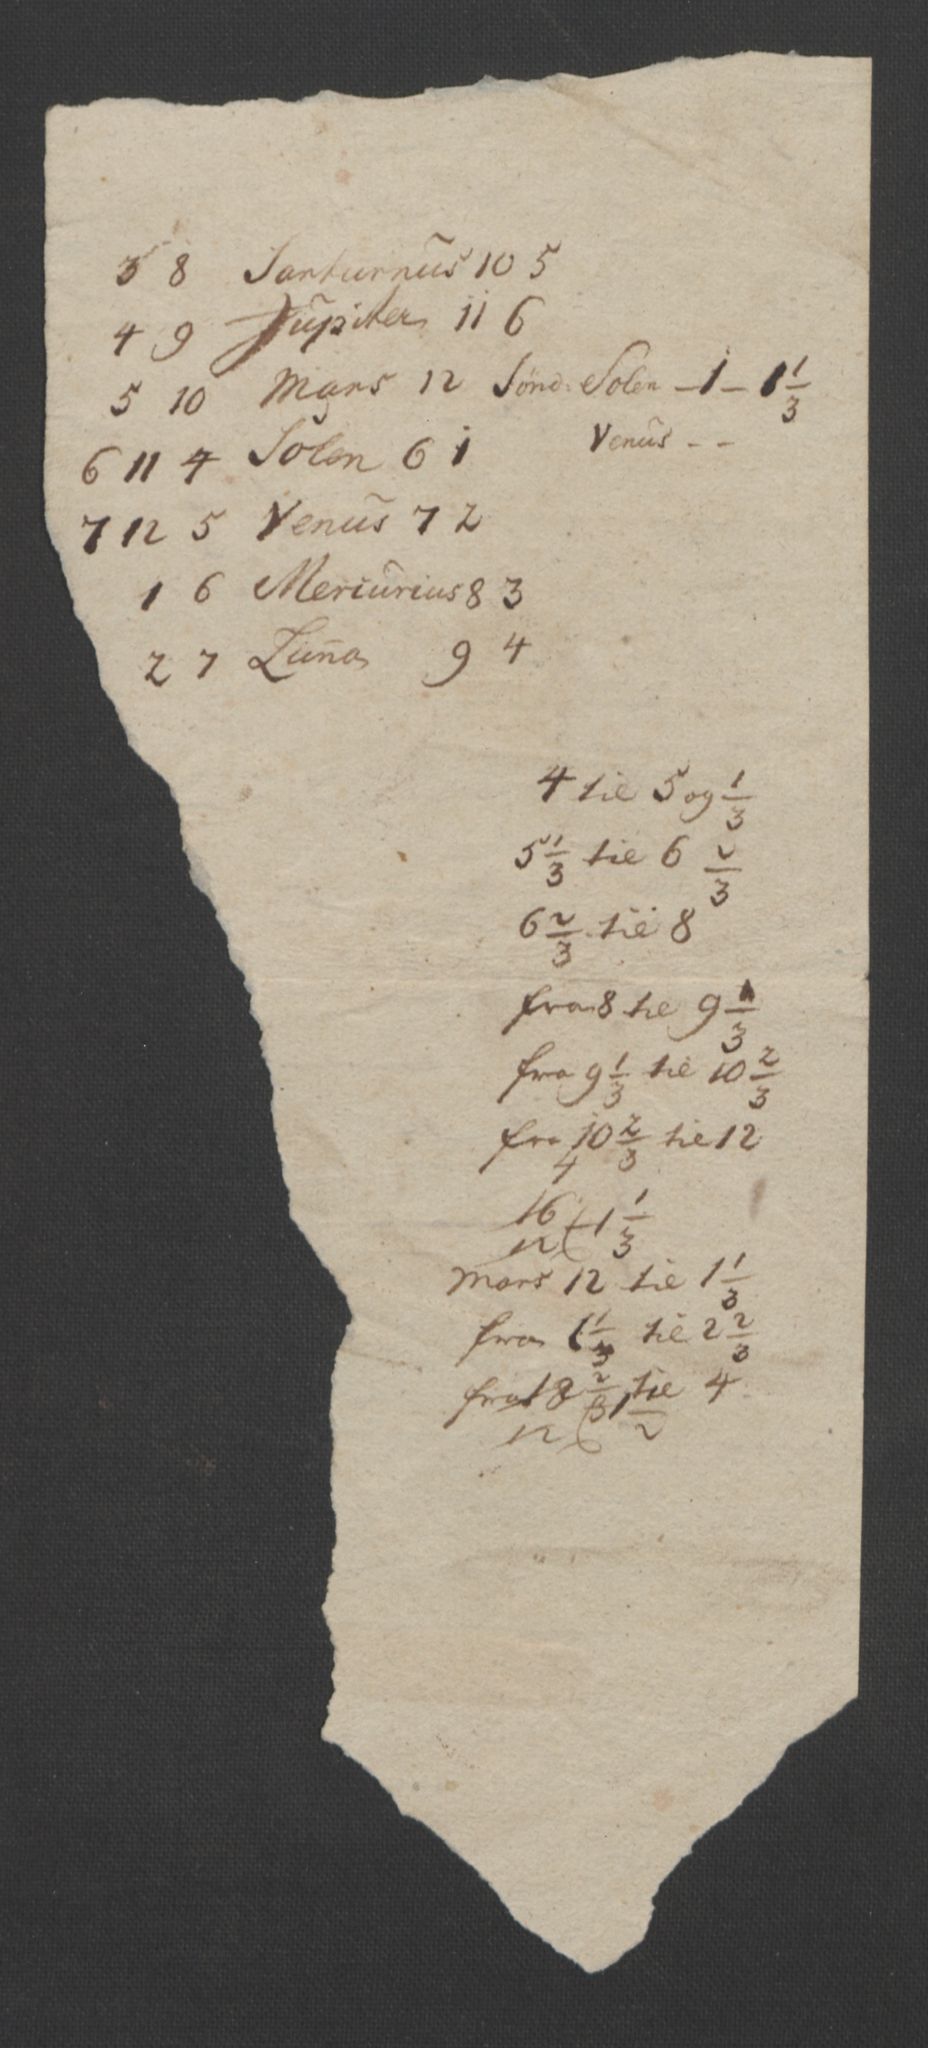 3 8 Santurnus 10 5
4 9 Jupiter 11 6
5 10 Mars 12 Sönd. Solen - 1 - 1 1/3
6 11 4 Solen 6 1 Venus - -
7 12 5 Venus 7 2
1 6 Meriurius 8 3
2 7 Luna 9 4
4 til 5 og 1/3
5 1/3 til 6 2/3
6 2/3 til 8
fra 8 til 9 1/3
fra 9 1/3 til 10 2/3
fra 10 2/3 til 12
4
16 ( 1 1/3
12
Mars 12 til 1 1/3
fra 1 1/3 til 2 2/3
fra 2/3 til 4
18 ( 1 1/2
12